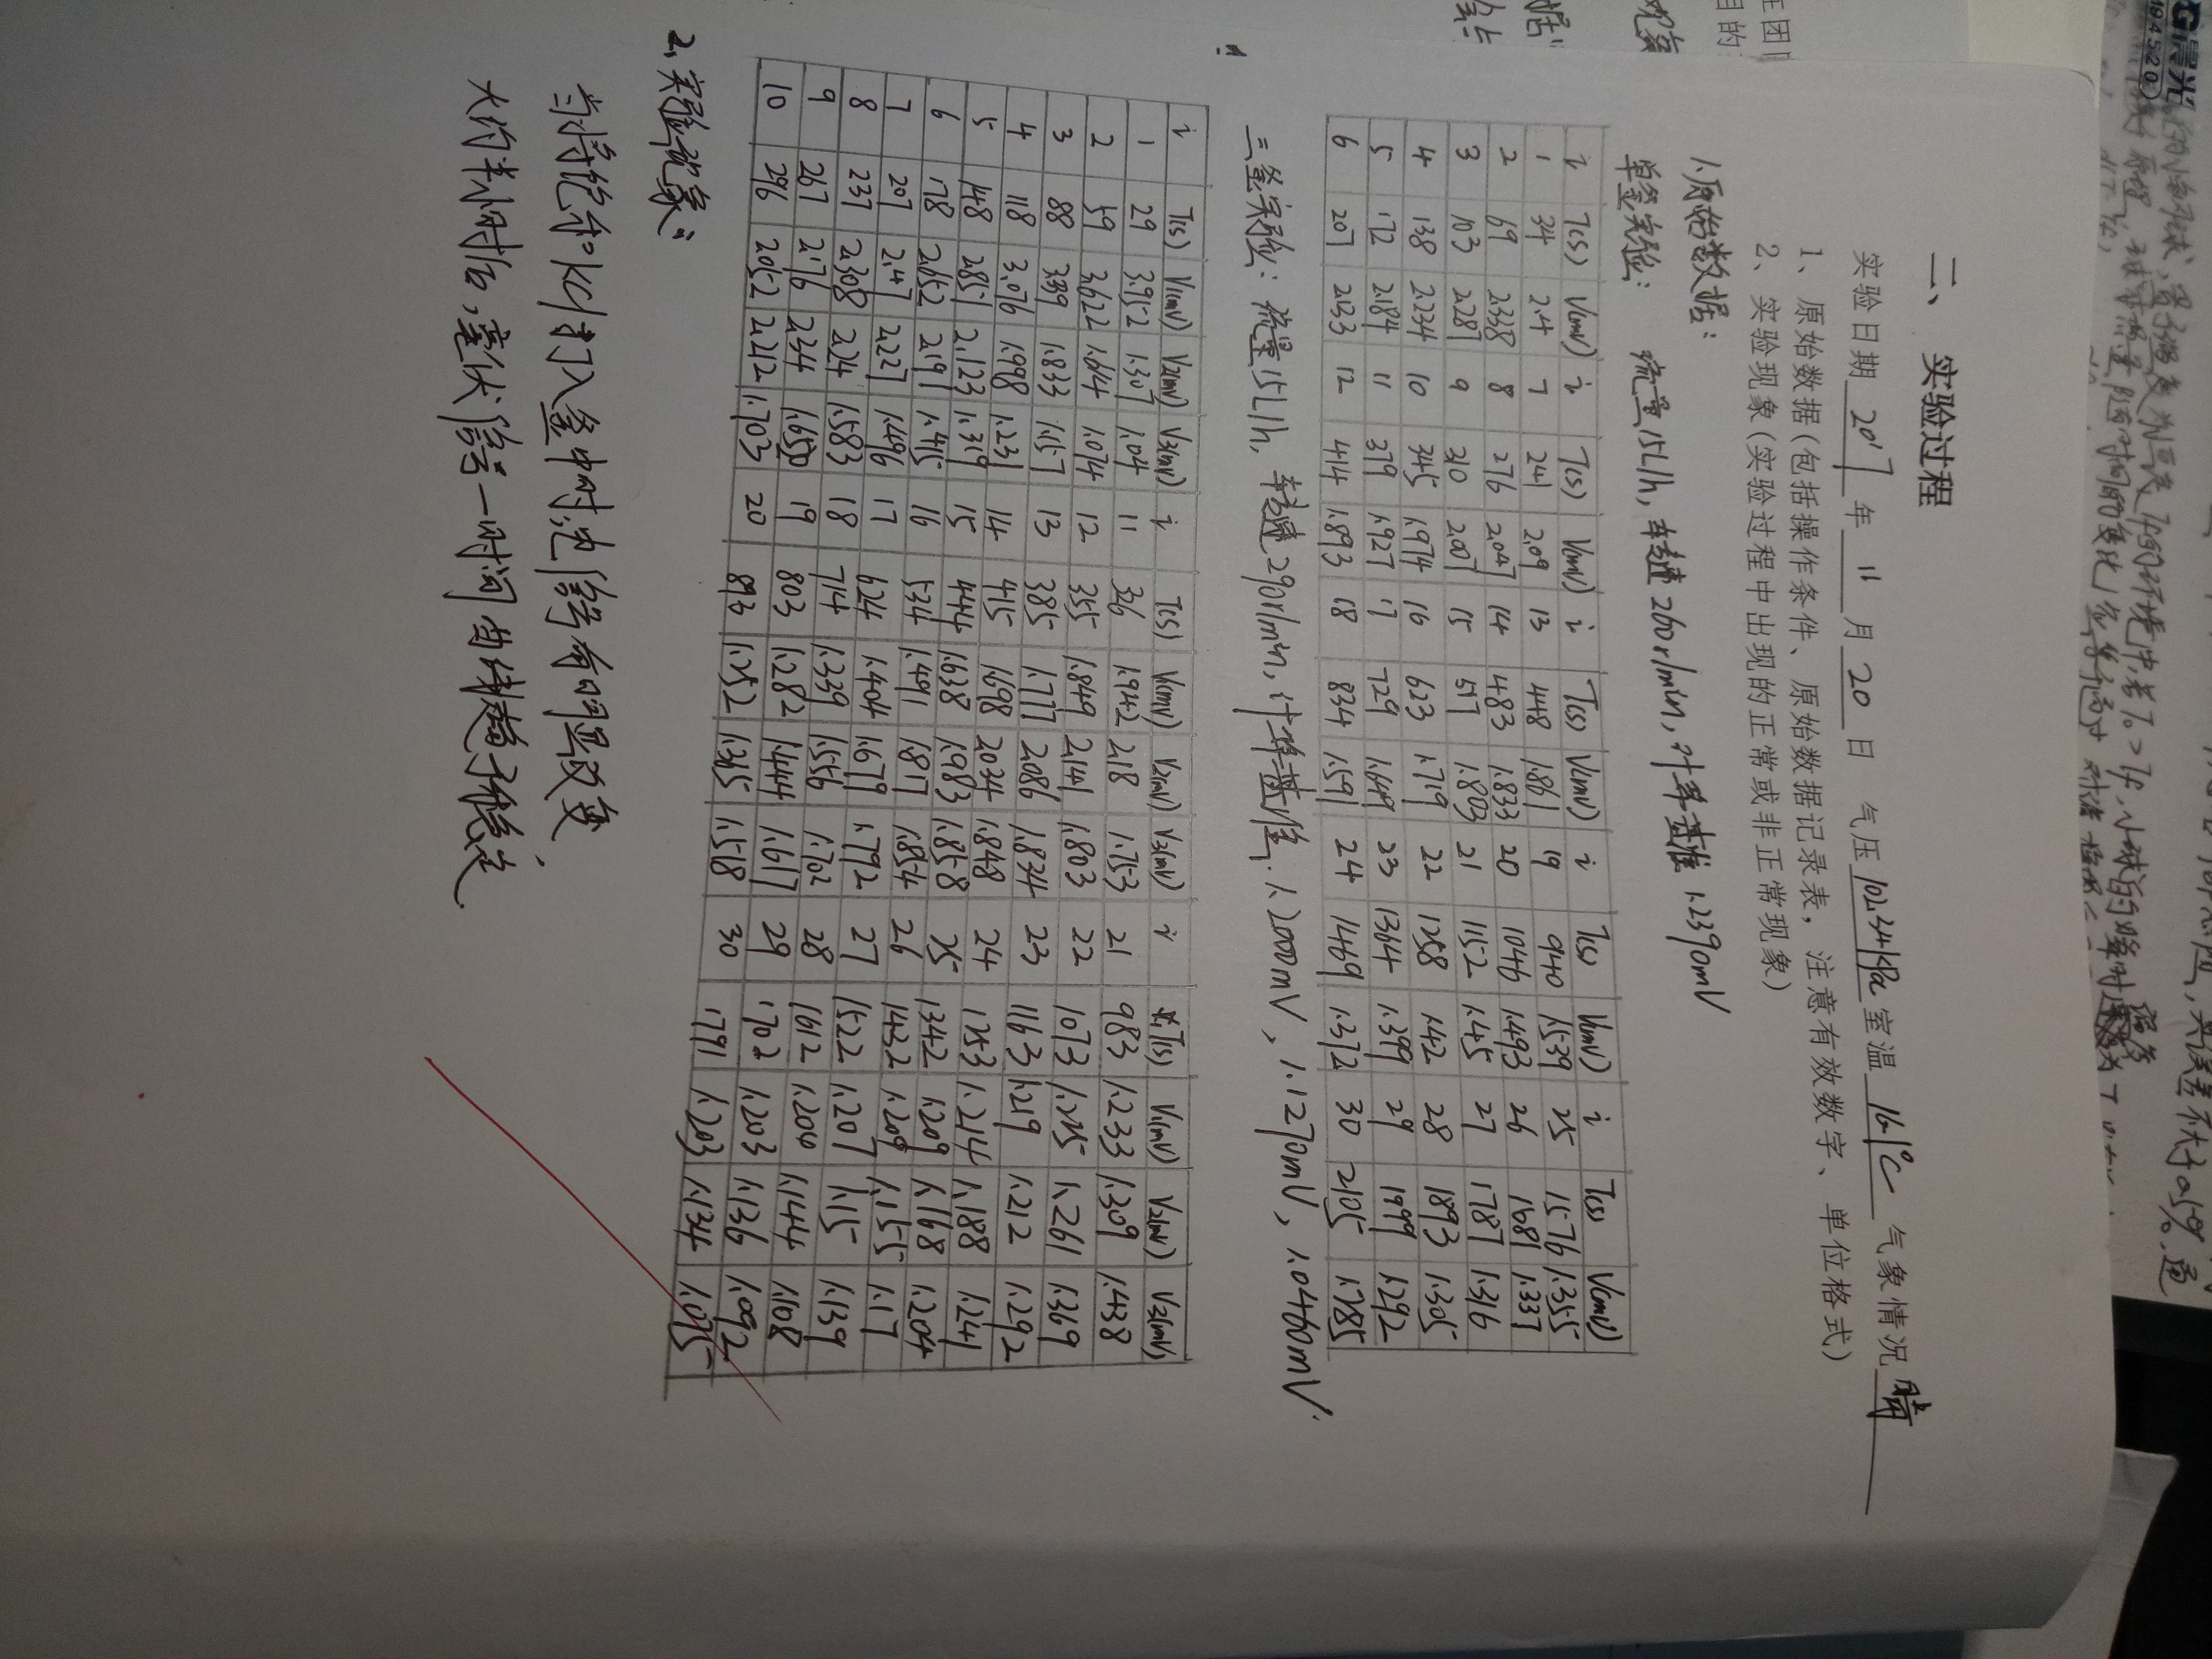 二、实验过程
实验日期 2017 年 11 月 20 日 气压 102.34kPa 室温 16.1℃ 气象情况 晴
1、原始数据(包括操作条件、原始数据记录表，注意有效数字、单位格式)
2、实验现象(实验过程中出现的正常或非正常现象)
1.原始数据：
单釜实验： 流量15L/h, 转速260r/min, 计算基准 1.2390mV
i T(s) V(mV) i T(s) V(mV) i T(s) V(mV) i T(s) V(mV) i T(s) V(mV)
1 34 2.4 7 241 2.09 13 448 1.861 19 940 1.539 25 1576 1.355
2 69 2.338 8 276 2.047 14 483 1.833 20 1046 1.493 26 1681 1.337
3 103 2.287 9 310 2.007 15 517 1.803 21 1152 1.45 27 1787 1.316
4 138 2.234 10 345 1.974 16 623 1.719 22 1258 1.42 28 1893 1.305
5 172 2.184 11 379 1.927 17 729 1.649 23 1364 1.399 29 1999 1.292
6 207 2.133 12 414 1.893 18 834 1.591 24 1469 1.372 30 2105 1.285
三釜实验： 流量15L/h, 转速290r/min, 计算基准 1.2000mV, 1.1270mV, 1.0400mV.
i T(s) V1(mV) V2(mV) V3(mV) i T(s) V1(mV) V2(mV) V3(mV) i T(s) V1(mV) V2(mV) V3(mV)
1 29 3.952 1.307 1.04 11 326 1.942 2.18 1.753 21 983 1.233 1.309 1.438
2 59 3.622 1.644 1.074 12 355 1.849 2.141 1.803 22 1073 1.225 1.261 1.369
3 88 3.339 1.833 1.157 13 385 1.777 2.086 1.834 23 1163 1.219 1.212 1.292
4 118 3.076 1.998 1.231 14 415 1.698 2.034 1.848 24 1253 1.214 1.188 1.241
5 148 2.851 2.123 1.319 15 444 1.638 1.983 1.858 25 1342 1.209 1.168 1.204
6 178 2.652 2.191 1.415 16 534 1.491 1.817 1.854 26 1432 1.209 1.155 1.17
7 207 2.47 2.227 1.496 17 624 1.404 1.679 1.792 27 1522 1.207 1.15 1.139
8 237 2.308 2.24 1.583 18 714 1.339 1.556 1.702 28 1612 1.206 1.144 1.108
9 267 2.176 2.234 1.650 19 803 1.282 1.444 1.617 29 1702 1.203 1.136 1.092
10 296 2.052 2.212 1.703 20 893 1.252 1.365 1.518 30 1791 1.203 1.134 1.075
2.实验现象：
当将饱和KCl打入釜中时,电信号有明显改变,
大约半小时后,毫伏信号一时间曲线趋于稳定.
晨光